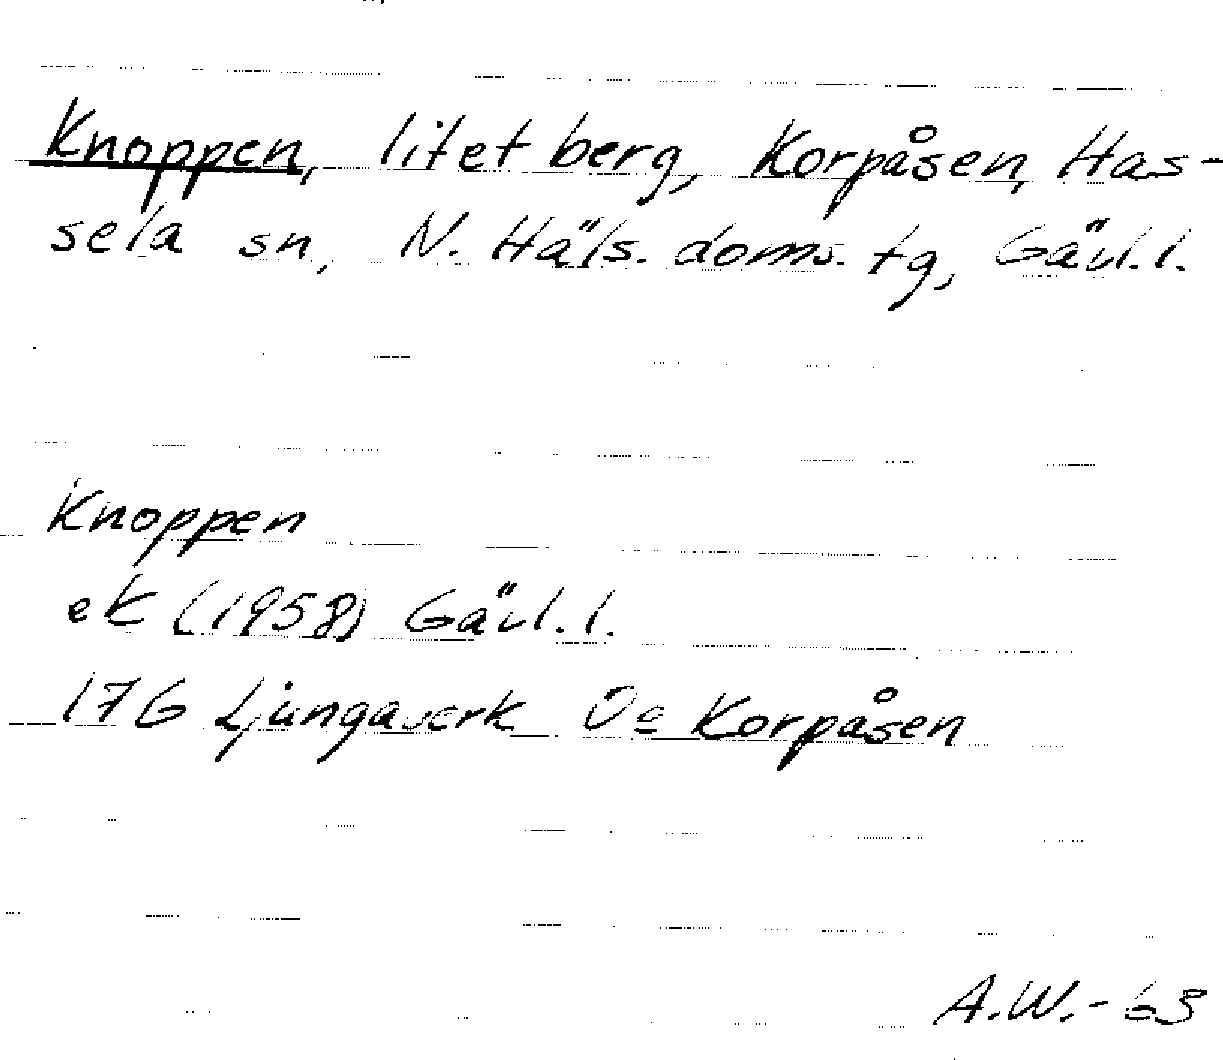 Knoppen, litet berg, Korpåsen, Has-
sela sn, N. Häls. doms. tg, Gävl. l.
Knoppen
ek (1958) Gävl. l.
17G Ljungaverk Korpåsen
A.W.-63